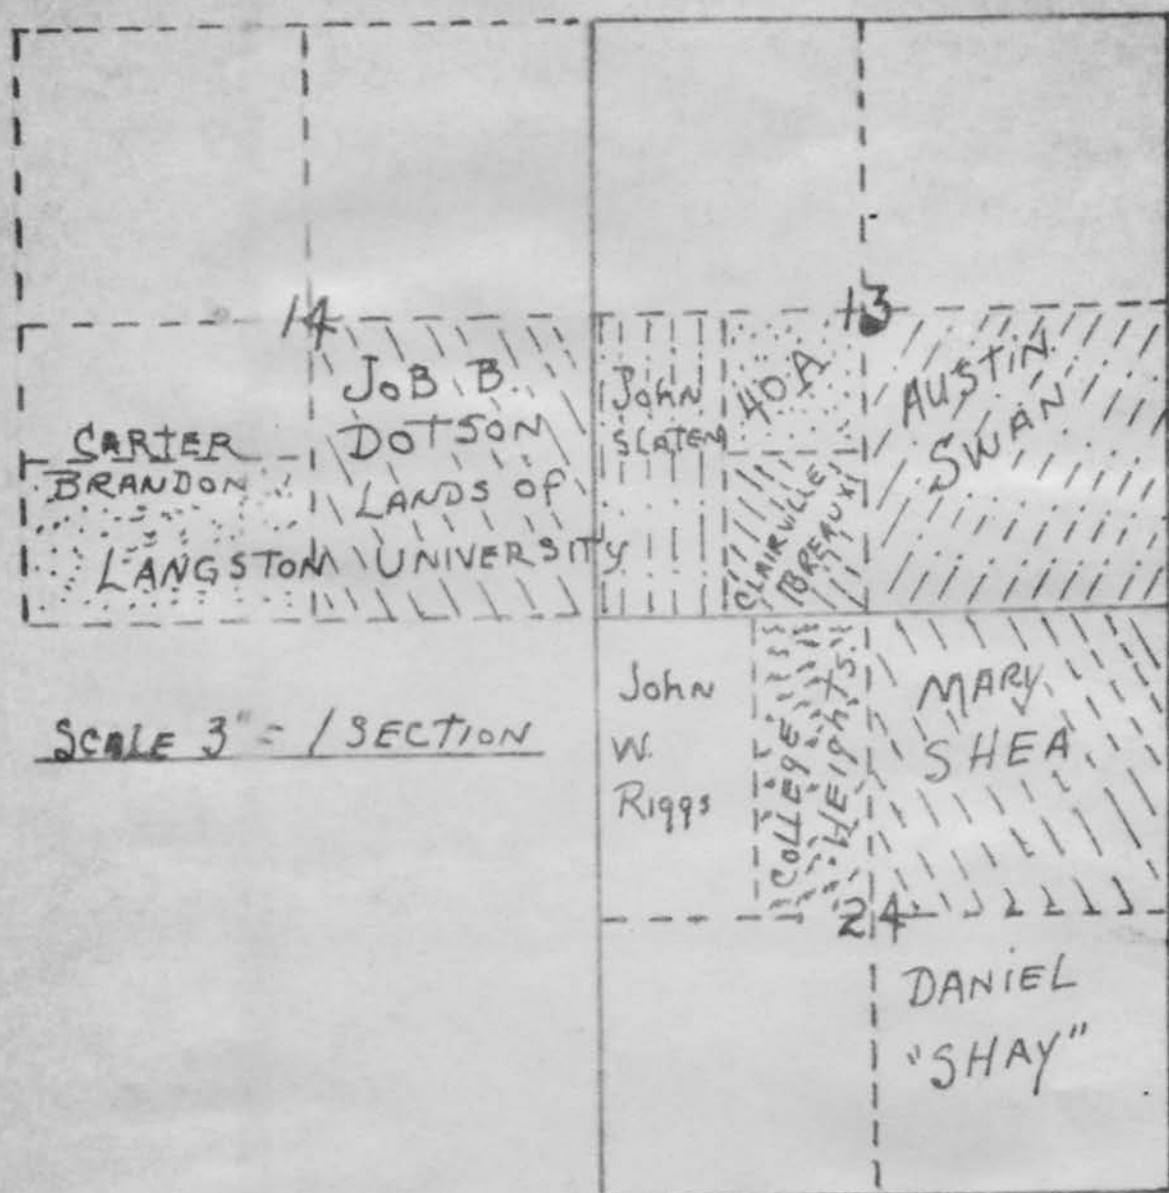 14
13
JOB B.
DOTSON
LANDS OF
LANGSTON UNIVERSITY
CARTER
BRANDON
John
SLATEN
40 A
CLAIRVILLE
BREAUX
AUSTIN
SWAN
SCALE 3" = 1 SECTION
John
W.
Riggs
COLLEGE
HEIGHTS.
MARY
SHEA
24
DANIEL
"SHAY"